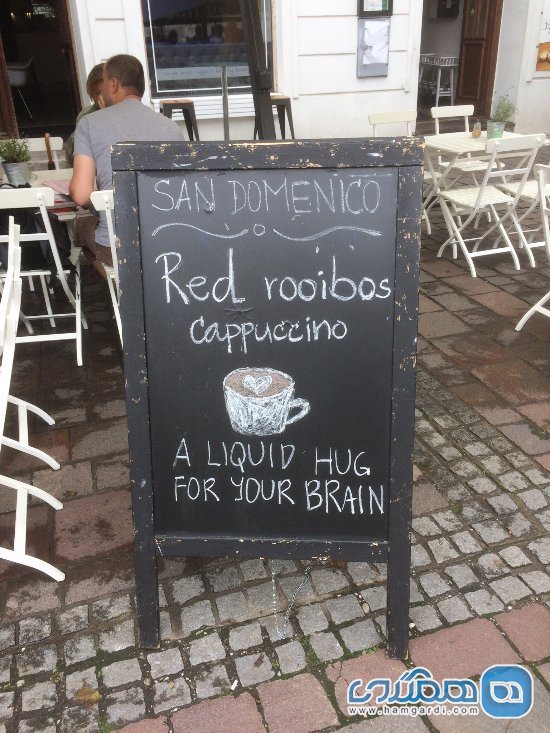 SAN DOMENICO
Red rooibos
cappuccino
A LIQUID HUG
FOR YOUR BRAIN
همگردی
www.hamgardi.com